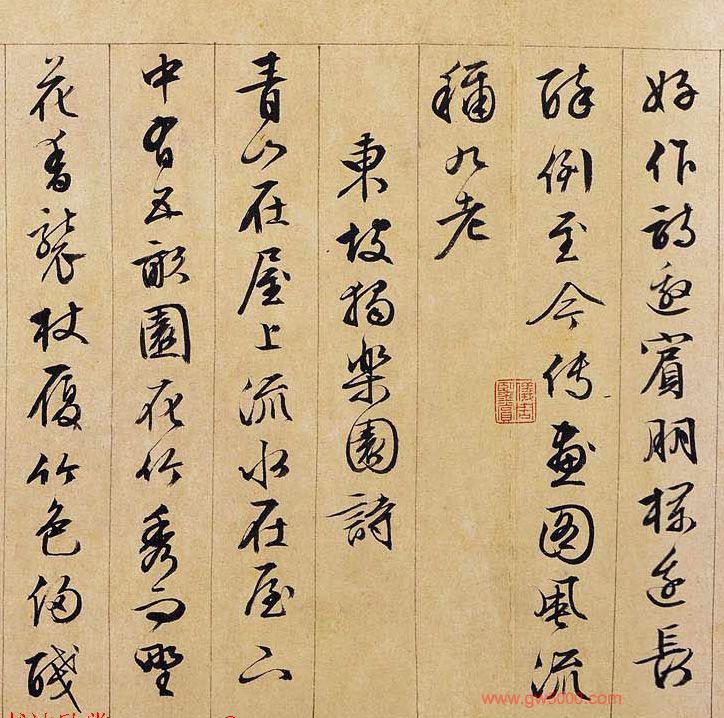 好作詩邀賓朋欄邊長
醉倒至今傳畫圖風流
稱九老
東坡獨樂園詩
青山在屋上流水在屋下
中有五畝園花竹秀而野
花香襲杖履竹色侵醆
www.gw5000.com